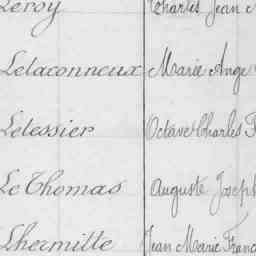 Leroy Charles Jean
Letaconneux Marie Ange
Letessier Octave Charles F
Le Thomas Auguste Joseph
Lhermitte Jean Marie Franc